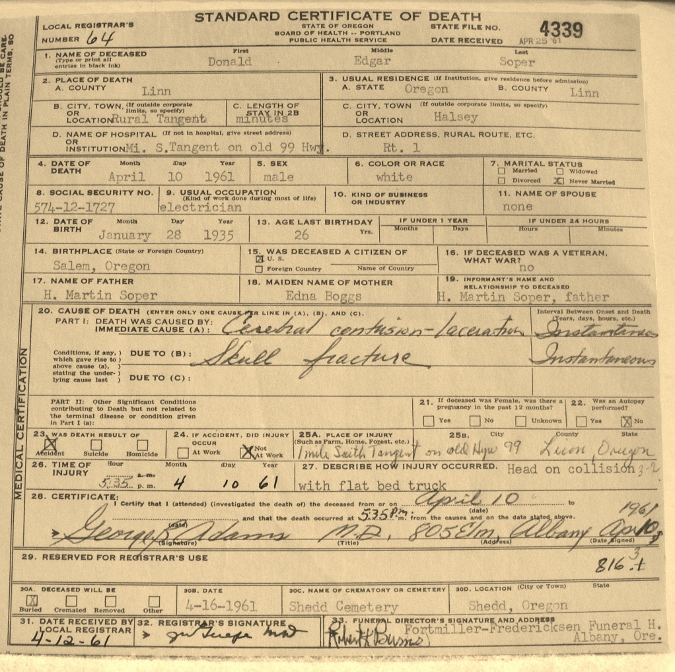 STANDARD CERTIFICATE OF DEATH
LOCAL REGISTRAR'S NUMBER 64
STATE OF OREGON
BOARD OF HEALTH -- PORTLAND
PUBLIC HEALTH SERVICE
STATE FILE NO. 4339
DATE RECEIVED APR 25 '61
1. NAME OF DECEASED (Type or print all entries in black ink) First Donald Middle Edgar Last Soper
2. PLACE OF DEATH
A. COUNTY Linn
3. USUAL RESIDENCE (If institution, give residence before admission)
A. STATE Oregon B. COUNTY Linn
B. CITY, TOWN, OR LOCATION (If outside corporate limits, so specify) Rural Tangent
C. LENGTH OF STAY IN 2B minutes
C. CITY, TOWN, OR LOCATION (If outside corporate limits, so specify) Halsey
D. NAME OF HOSPITAL OR INSTITUTION (If not in hospital, give street address) Mi. S.Tangent on old 99 Hwy.
D. STREET ADDRESS, RURAL ROUTE, ETC. Rt. 1
4. DATE OF DEATH Month April Day 10 Year 1961
5. SEX male
6. COLOR OR RACE white
7. MARITAL STATUS
Married Widowed
Divorced X Never Married
8. SOCIAL SECURITY NO. 574-12-1727
9. USUAL OCCUPATION (Kind of work done during most of life) electrician
10. KIND OF BUSINESS OR INDUSTRY
11. NAME OF SPOUSE none
12. DATE OF BIRTH Month January Day 28 Year 1935
13. AGE LAST BIRTHDAY 26 Yrs.
IF UNDER 1 YEAR Months Days
IF UNDER 24 HOURS Hours Minutes
14. BIRTHPLACE (State or Foreign Country) Salem, Oregon
15. WAS DECEASED A CITIZEN OF
X U. S.
Foreign Country Name of Country
16. IF DECEASED WAS A VETERAN, WHAT WAR? no
17. NAME OF FATHER H. Martin Soper
18. MAIDEN NAME OF MOTHER Edna Boggs
19. INFORMANT'S NAME AND RELATIONSHIP TO DECEASED H. Martin Soper, father
MEDICAL CERTIFICATION
20. CAUSE OF DEATH (ENTER ONLY ONE CAUSE PER LINE IN (A), (B), AND (C).
Interval Between Onset and Death (Years, days, hours, etc.)
PART I: DEATH WAS CAUSED BY:
IMMEDIATE CAUSE (A): Cerebral contusion-laceration
Conditions, if any, which gave rise to above cause (a), stating the underlying cause last
DUE TO (B): Skull fracture Instantaneous
DUE TO (C):
PART II: Other Significant Conditions contributing to Death but not related to the terminal disease or condition given in Part I (a):
21. If deceased was Female, was there a pregnancy in the past 12 months?
Yes No Unknown
22. Was an Autopsy performed?
Yes X No
23. WAS DEATH RESULT OF
X Accident Suicide Homicide
24. IF ACCIDENT, DID INJURY OCCUR
At Work X Not At Work
25A. PLACE OF INJURY (Such as Farm, Home, Forest, etc.)
25B. City County State
1 mile South Tangent on old Hyw 99 Linn Oregon
26. TIME OF INJURY Hour 5:35 a. m. p. m. Month 4 Day 10 Year 61
27. DESCRIBE HOW INJURY OCCURRED. Head on collision
with flat bed truck
28. CERTIFICATE:
I Certify that I (attended) (investigated the death of) the deceased from or on April 10 (date) to
1961 (date) and that the death occurred at 5:35 P.m. from the causes and on the date stated above.
George B Adams M.D. 805 Elm, Albany
(Signature) (Title) (Address) (Date Signed)
29. RESERVED FOR REGISTRAR'S USE
30A. DECEASED WILL BE
X Buried Cremated Removed Other
30B. DATE 4-16-1961
30C. NAME OF CREMATORY OR CEMETERY Shedd Cemetery
30D. LOCATION (City or Town) State Shedd, Oregon
31. DATE RECEIVED BY LOCAL REGISTRAR 4-12-61
32. REGISTRAR'S SIGNATURE
33. FUNERAL DIRECTOR'S SIGNATURE AND ADDRESS Fortmiller-Fredericksen Funeral H.
Albany, Ore.